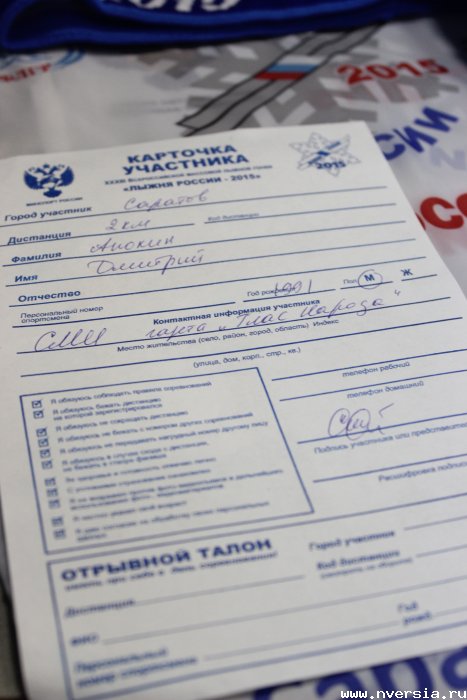 2015
2015
МИНСПОРТ РОССИИ
КАРТОЧКА
УЧАСТНИКА
XXXIII ВСЕРОССИЙСКОЙ МАССОВОЙ ЛЫЖНОЙ ГОНКИ
«ЛЫЖНЯ РОССИИ - 2015»
2015
Город участник Саратов
Дистанция 2км Код дистанции
Фамилия Анохин
Имя Дмитрий
Отчество
Персональный номер спортсмена Год рождения 1991 Пол М Ж
Контактная информация участника
СМИ газета „Глас Народа“
Место жительства (село, район, город, область) Индекс
(улица, дом, корп., стр., кв.)
телефон рабочий
телефон домашний
Подпись участника или представителя
Расшифровка подписи
Я обязуюсь соблюдать правила соревнований
Я обязуюсь бежать дистанцию
на которой зарегистрировался
Я обязуюсь не сокращать дистанцию
Я обязуюсь не бежать с номером других соревнований
Я обязуюсь не передавать нагрудный номер другому лицу
Я обязуюсь в случае схода с дистанции,
не бежать в створ финиша
ОТРЫВНОЙ ТАЛОН
Город участник
Код дистанции
Дистанция
ФИО
Год рожд.
Персональный
номер спортсмена
www.nversia.ru